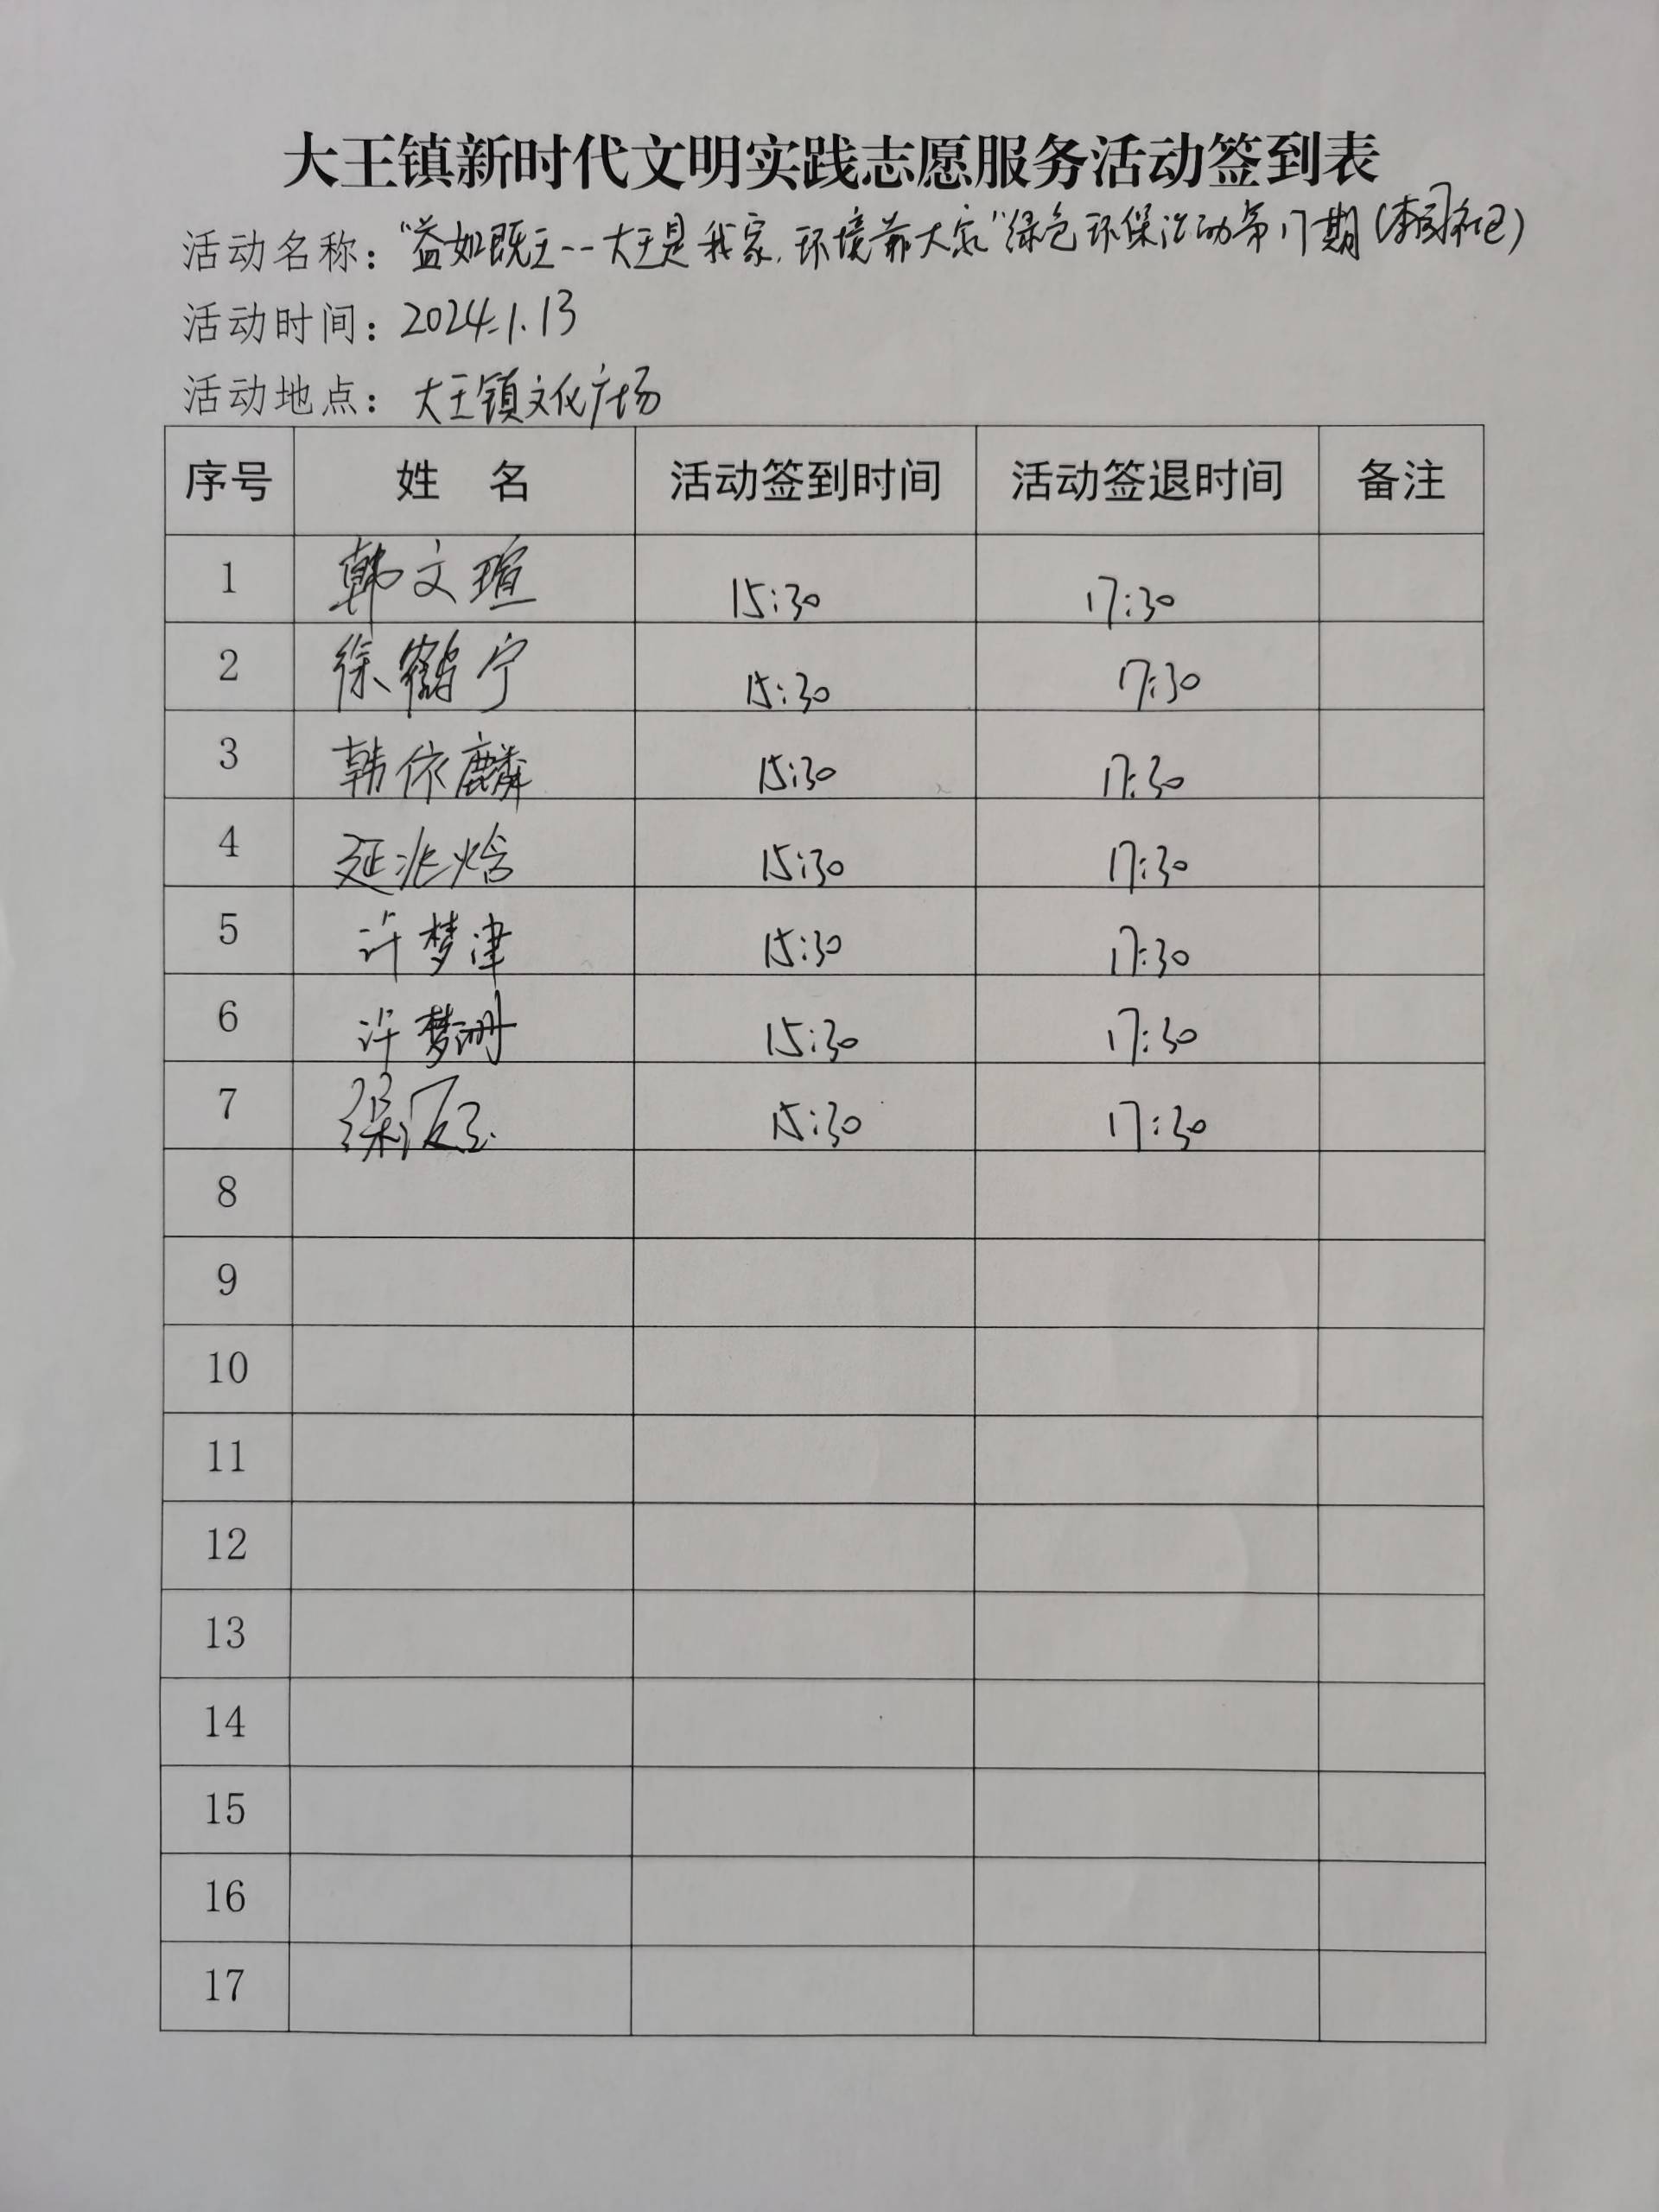 大王镇新时代文明实践志愿服务活动签到表
活动名称：“益如既王--大王是我家,环境靠大家”绿色环保活动第17期(李司社区)
活动时间：2024.1.13
活动地点：大王镇文化广场
序号 姓 名 活动签到时间 活动签退时间 备注
1 韩文瑄 15:30 17:30
2 徐鹤宁 15:30 17:30
3 韩依麟 15:30 17:30
4 延兆焓 15:30 17:30
5 许梦津 15:30 17:30
6 许梦珊 15:30 17:30
7 15:30 17:30
8
9
10
11
12
13
14
15
16
17